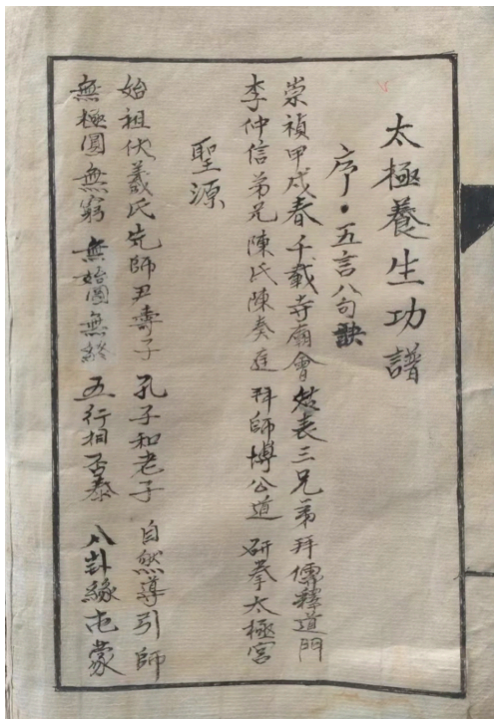 太極養生功譜
序·五言八句訣
崇禎甲戍春 千載寺廟會 姑表三兄弟 拜儒釋道門
李仲信弟兄 陳氏陳奏庭 拜師博公道 研拳太極宮
聖源
始祖伏羲氏 先師尹壽子 孔子和老子 自然導引師
無極圓無窮 無始圓無終 五行相否泰 八卦緣屯蒙